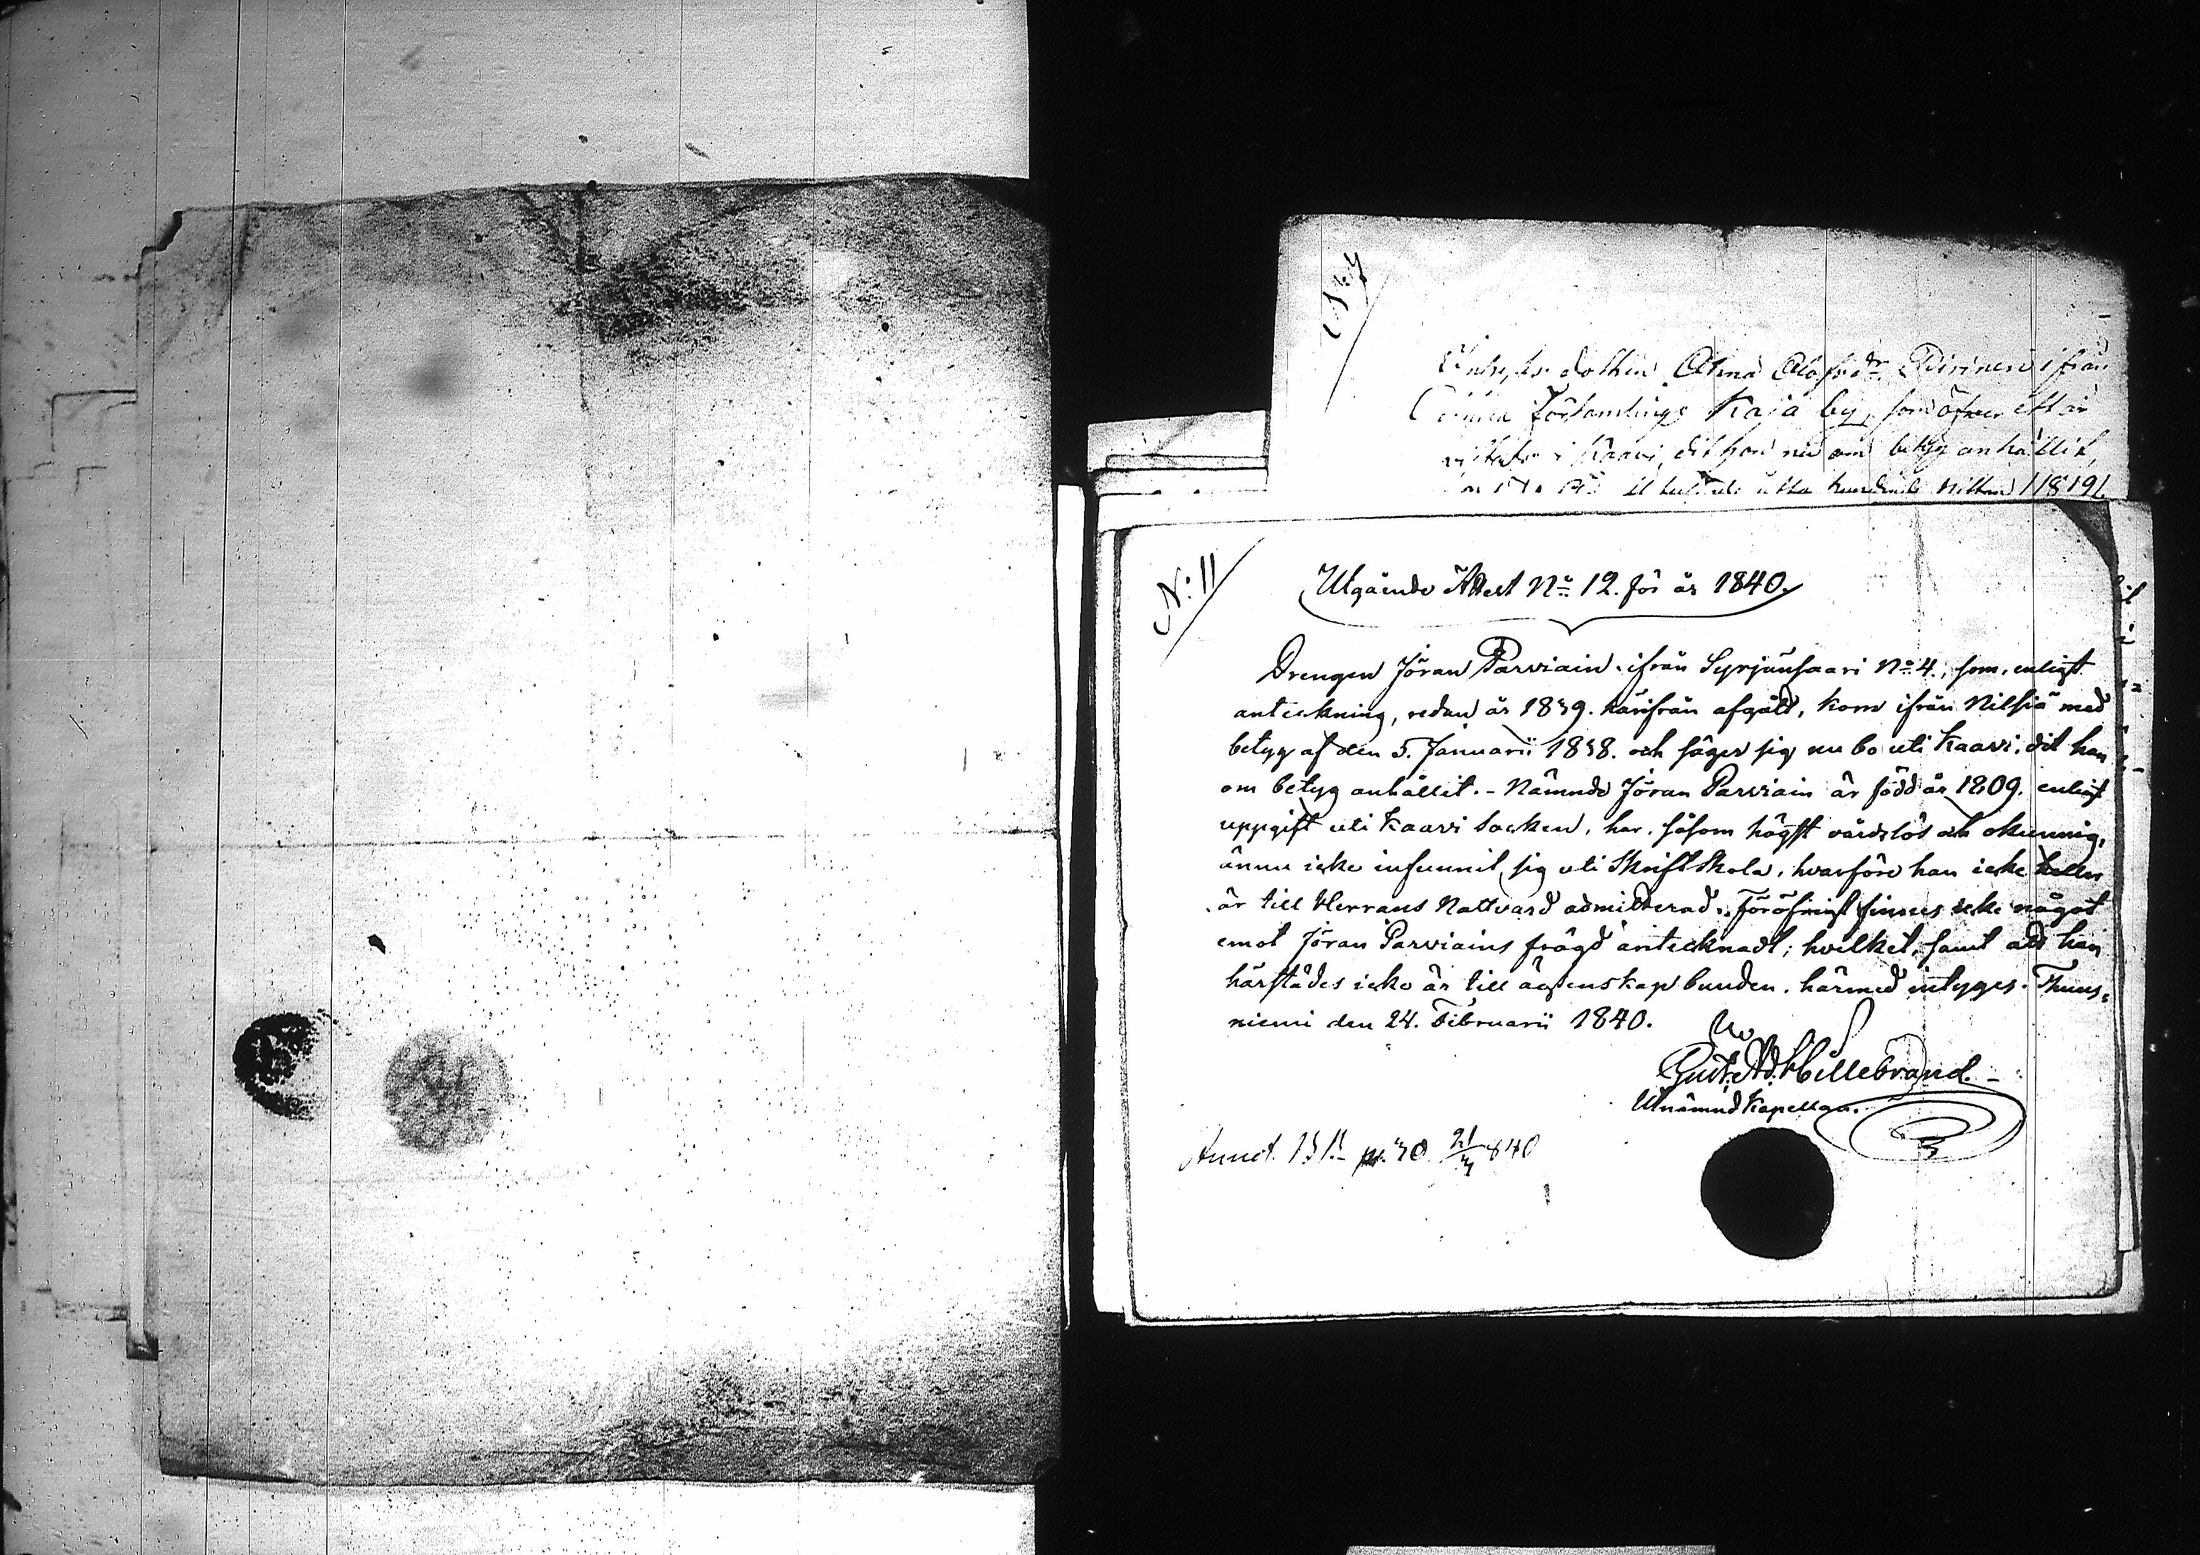 dottren Anna Olofsdr. Piirinen ifrån
Församlings Kaja by, som öfver ett år
i Kaavi, dit hon nu om betyg anhållit,
åtta hundrade nitton /1819/
N:o 11
Utgående Attest No 12. för år 1840.
Drengen Jöran Parviain. ifrån Syrjänsaari No 4., som, enligt
anteckning, redan år 1839. härifrån afgått, kom ifrån Nilsiä med
betyg af den 5. Januarii 1838. och säger sig nu bo uti Kaavi, dit han
om betyg anhållit. - Nämnde Jöran Parviain är född år 1809. enligt
uppgift uti Kaavi Socken, har, såsom högst vårdslös och okunnig,
ännu icke infunnit sig uti Skriftskola, hvarföre han icke heller
är till Herrans Nattvard admitterad. Föröfrigt finnes icke något
emot Jöran Parviains frägd antecknadt; hvilket, samt att han
härstädes icke är till ägtenskap bunden, härmed intygas. Thuus-
niemi den 24. Februarii 1840.
Gust. Ad. Hillebrand.
Utnämnd Kapellan.
Annot. p. 30 21/3 840